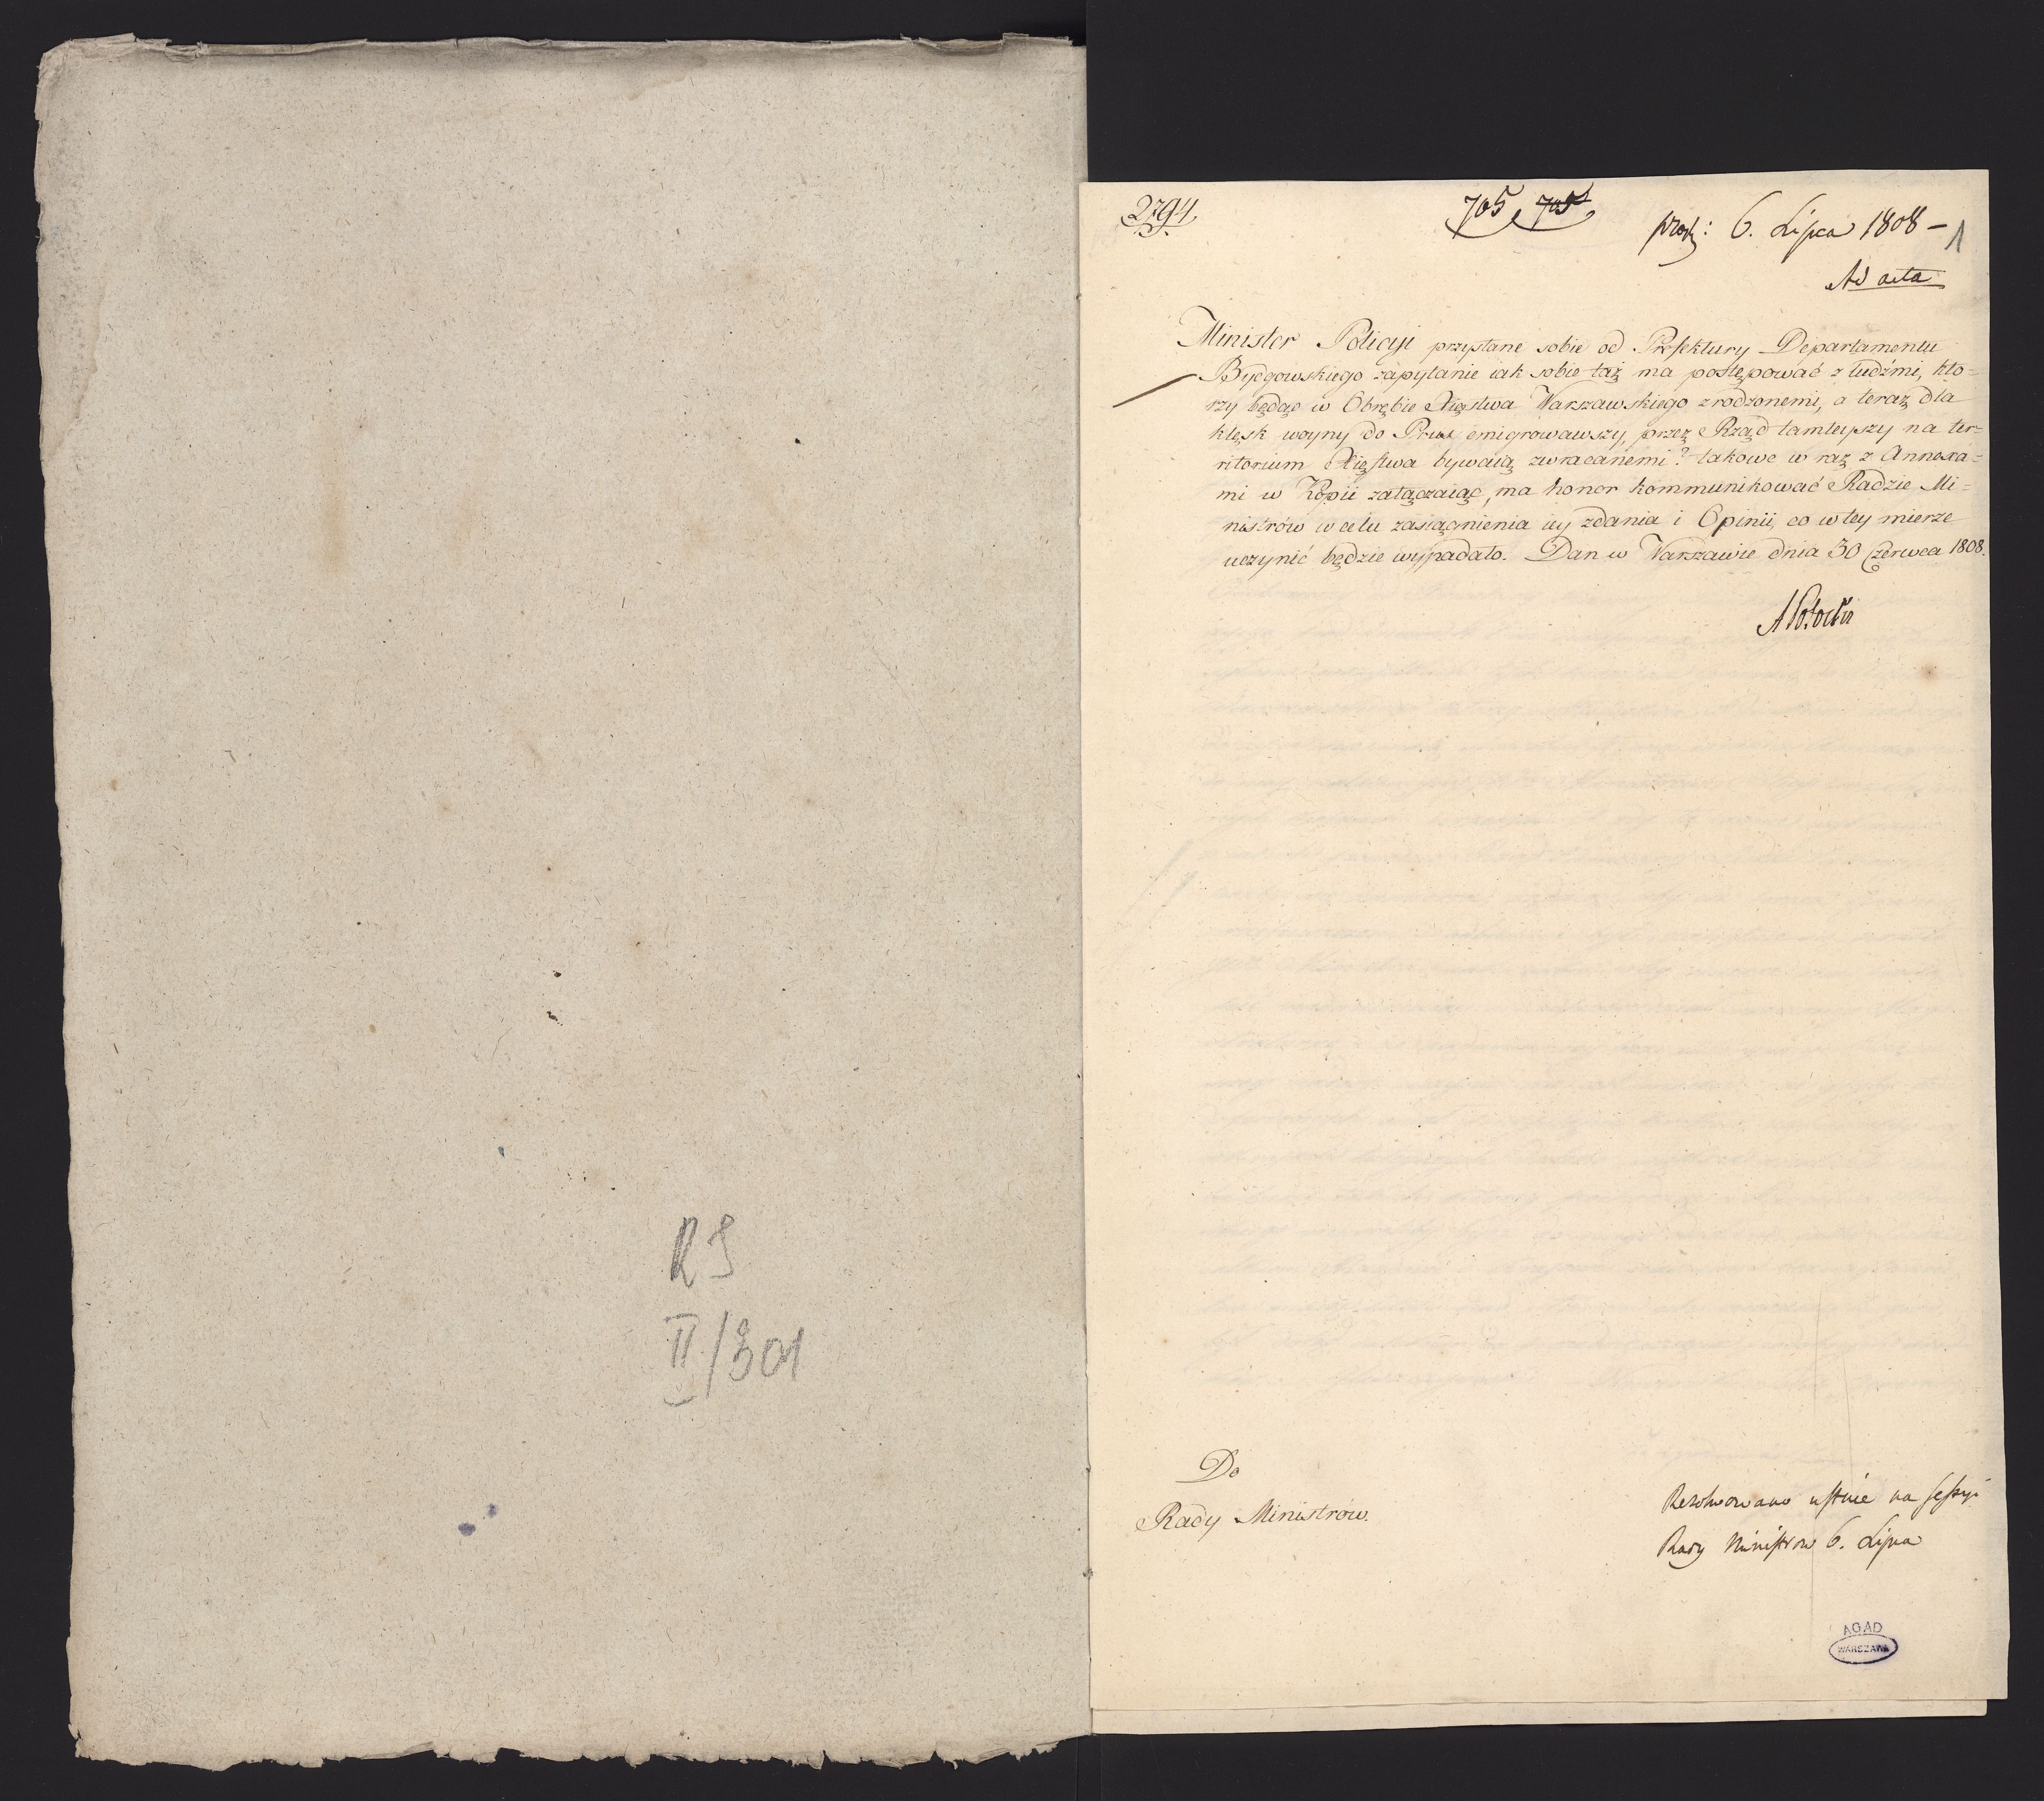 RS
II/301
2794.
705 705
prod: 6. Lipca 1808 –
1
Ad acta
Minister Policyi przysłane sobie od Prefektury Departamentu
Bydgowskiego zapytanie iak sobie taż ma postępować z ludźmi, któ=
rzy będąc w Obrębie Xięstwa Warszawskiego zrodzonemi, a teraz dla
klęsk woyny do Prus emigrowawszy, przez Rząd tamteyszy na ter=
ritorium Xięstwa bywaią zwracanemi? takowe w raz z Annexa=
mi w Kopii załączaiąc, ma honor kommunikować Radzie Mi=
nistrów w celu zasiągnienia iey zdania i Opinii, co w tey mierze
uczynić będzie wypadało. Dan w Warszawie dnia 30 Czerwca 1808.
A Potocki
Do
Rady Ministrów.
Rezolwowano ustnie na sessyi
Rady Ministrow 6. Lipca
AGAD
WARSZAWA